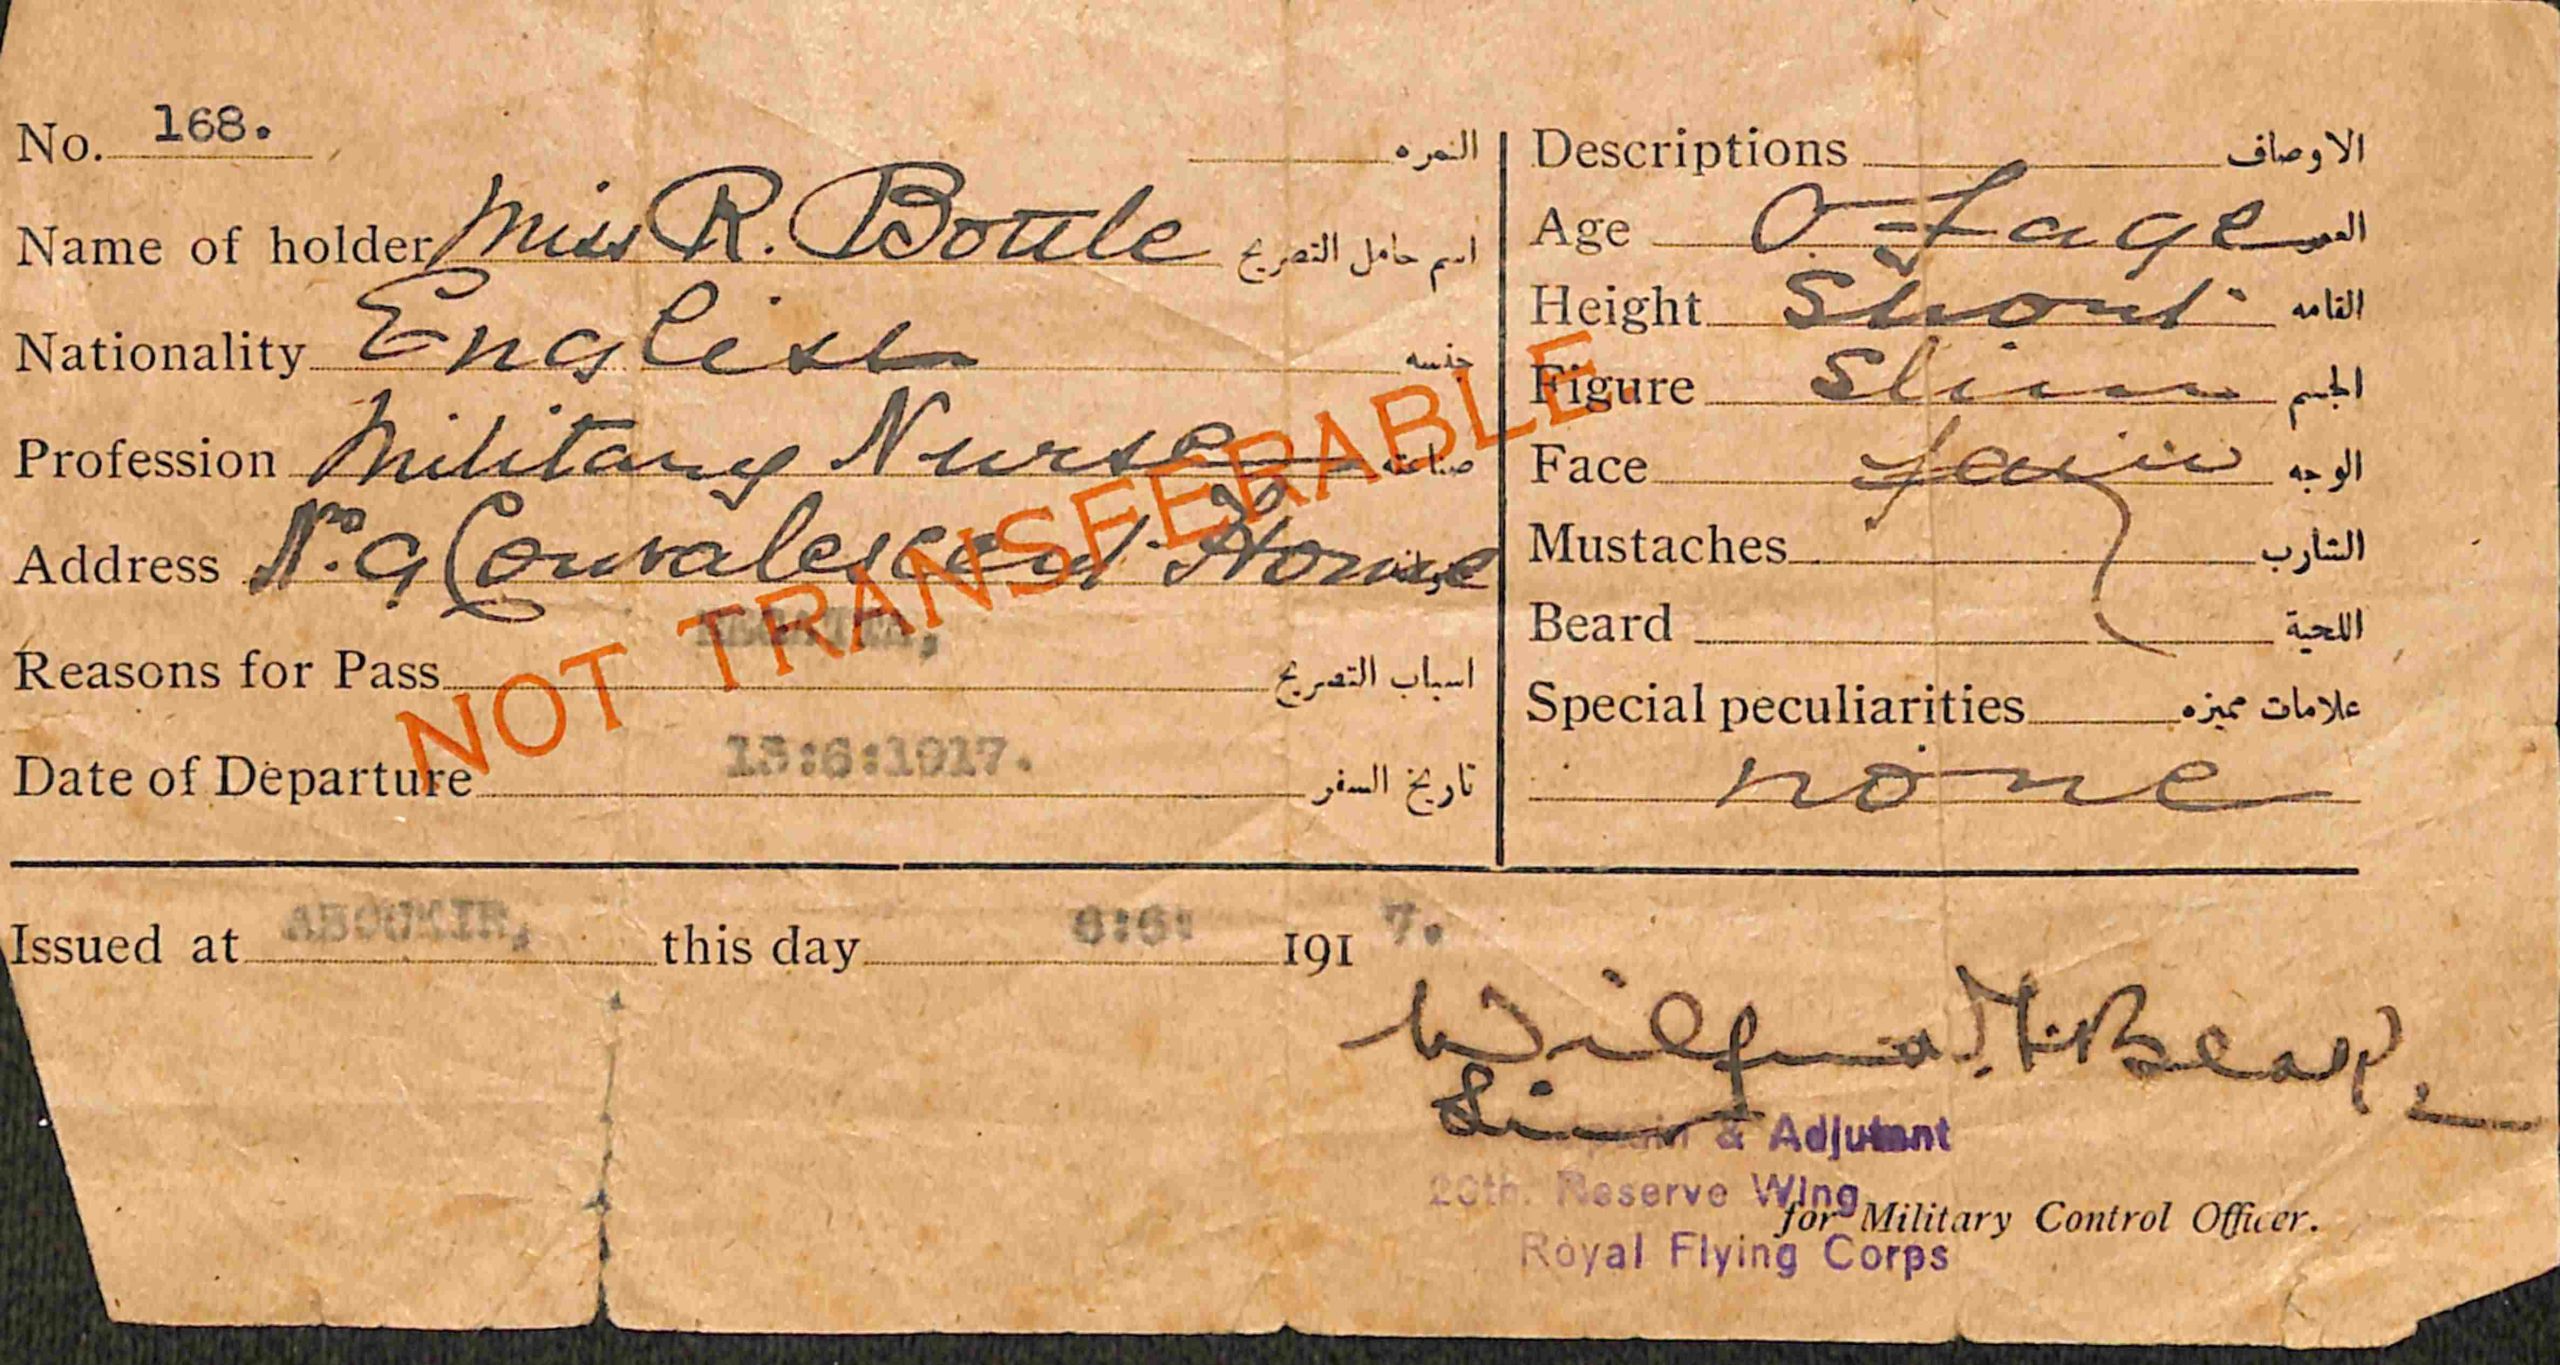 No. 168. النمره
Name of holder Miss R. Bottle اسم حامل التصريح
Nationality English جنسه
Profession Military Nurse صناعته
Address No. 9 Convalescent Home
ABOUKIR,
Reasons for Pass اسباب التصريح
Date of Departure 13:6:1917. تاريخ السفر
NOT TRANSFERABLE
Descriptions الاوصاف
Age O. F age العمر
Height Short القامه
Figure Slim الجسم
Face fair الوجه
Mustaches الشارب
Beard اللحية
Special peculiarities علامات مميزه
none
Issued at ABOUKIR, this day 6:6: 1917.
& Adjutant
20th. Reserve Wing
for Military Control Officer.
Royal Flying Corps